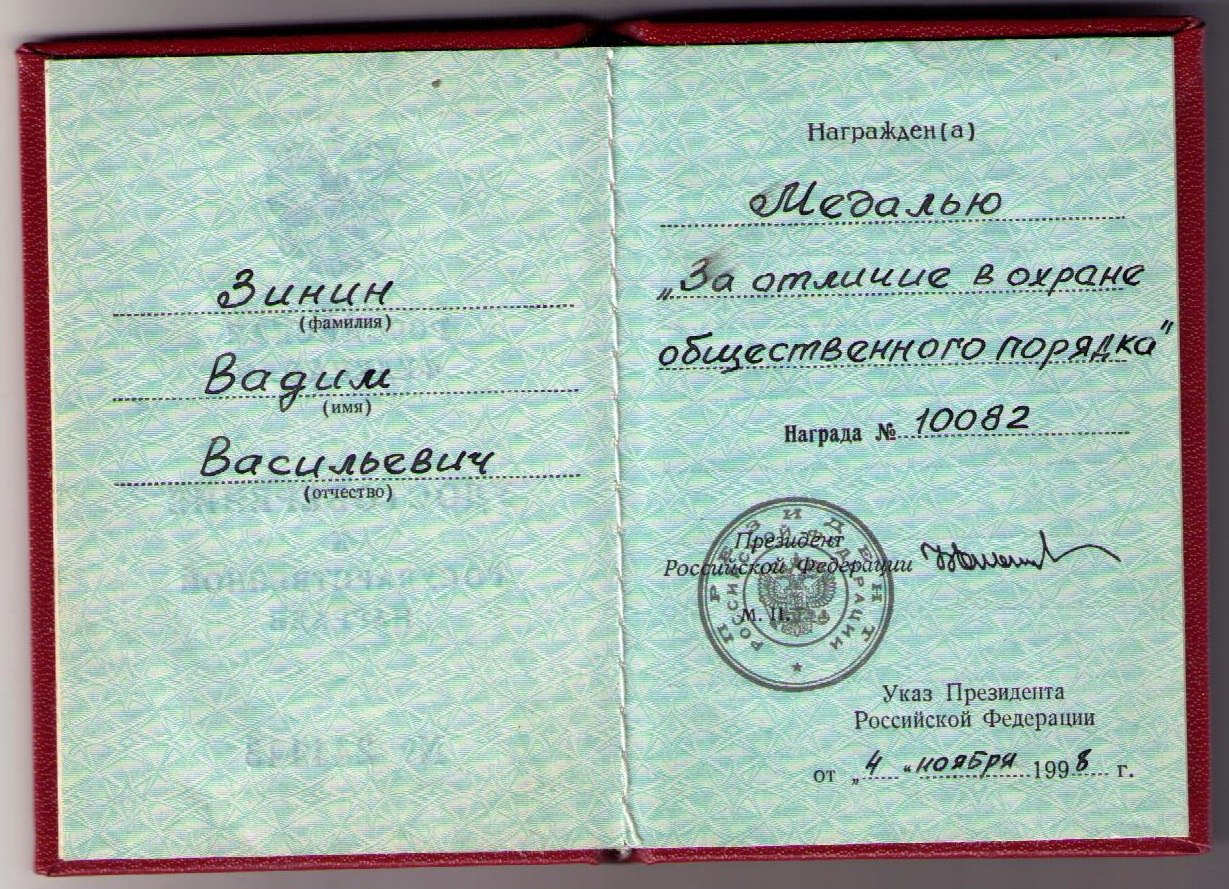 Зинин
(фамилия)
Вадим
(имя)
Васильевич
(отчество)
Награжден(а)
Медалью
„За отличие в охране
общественного порядка"
Награда № 10082
Президент
Российской Федерации
М. П.
ПРЕЗИДЕНТ
РОССИЙСКОЙ ФЕДЕРАЦИИ
Указ Президента
Российской Федерации
от „4" ноября 1998 г.